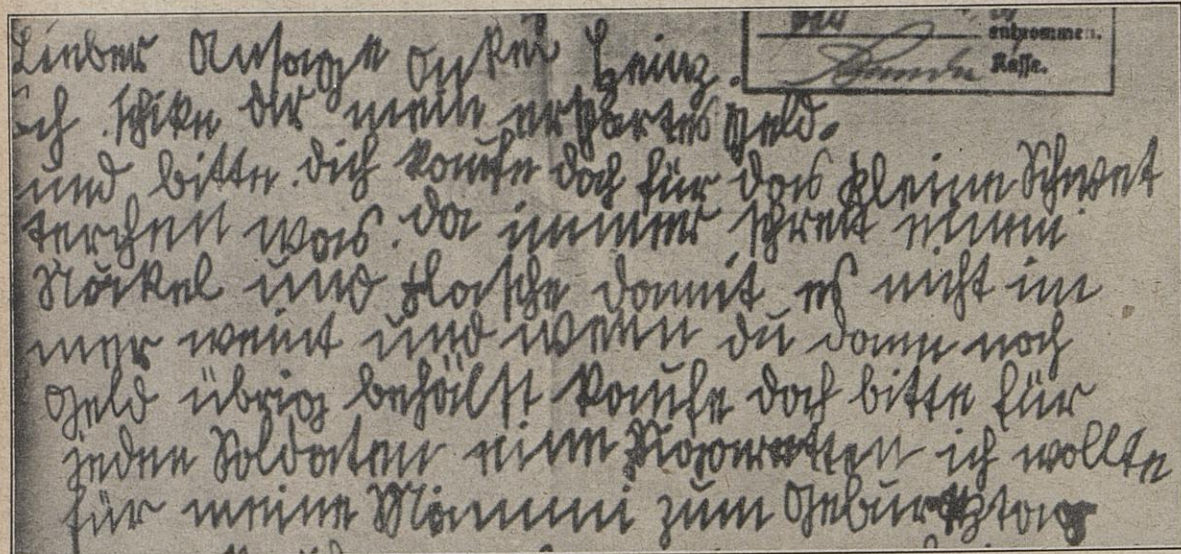 entnommen.
Kasse.
Lieber Ansage Onkel Heinz.
ich schike dir mein erspartes Geld.
und bitte dich kaufe doch für das kleine Schwet
terchen was. da immer schreit einen
Nückel und Flasche damit es nicht im
mer weint und wenn du dann noch
Geld übrig behälst kaufe doch bitte für
jeden Soldaten eine ich wollte
für meine Mammi zum Geburtztag